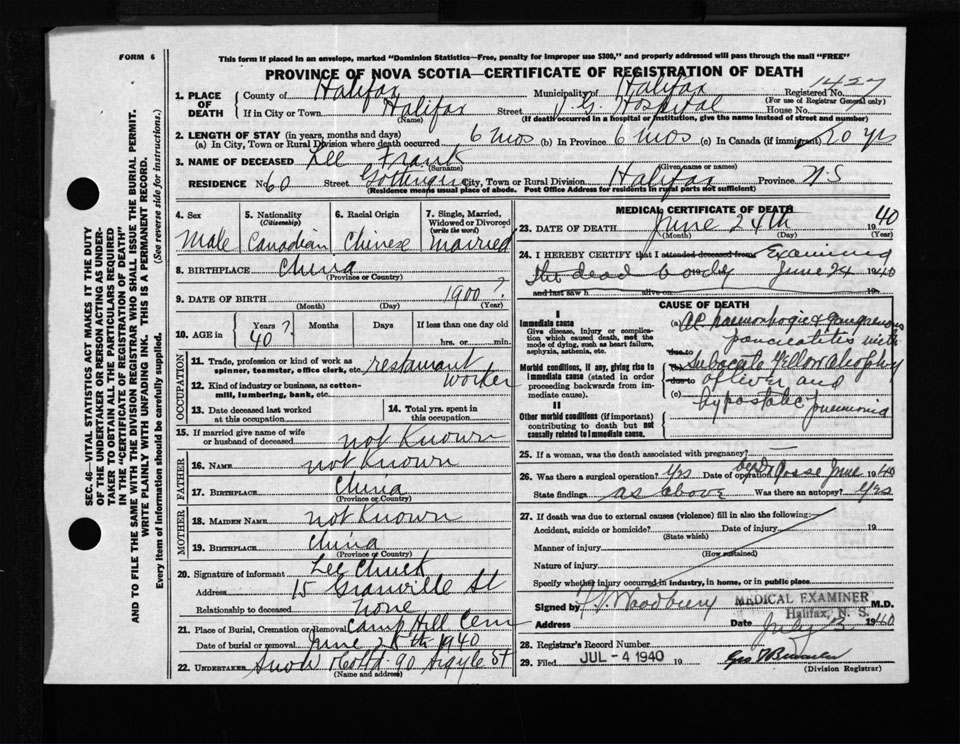 FORM 6
This form if placed in an envelope, marked "Dominion Statistics—Free, penalty for improper use $300," and properly addressed will pass through the mail "FREE"
PROVINCE OF NOVA SCOTIA—CERTIFICATE OF REGISTRATION OF DEATH
1427
1. PLACE OF DEATH County of Halifax Municipality of Halifax Registered No.
(For use of Registrar General only)
If in City or Town Halifax Street V.G. Hospital House No.
(Name) (If death occurred in a hospital or institution, give the name instead of street and number)
2. LENGTH OF STAY (in years, months and days)
(a) In City, Town or Rural Division where death occurred 6 mos (b) In Province 6 mos (c) In Canada (if immigrant) 20 yrs
3. NAME OF DECEASED Lee Frank
(Surname) (Given name or names)
RESIDENCE No 60 Street Gottingen City, Town or Rural Division Halifax Province N S
(Residence means usual place of abode. Post Office Address for residents in rural parts not sufficient)
SEC. 46—VITAL STATISTICS ACT MAKES IT THE DUTY
OF THE UNDERTAKER OR PERSON ACTING AS UNDER-
TAKER TO OBTAIN ALL THE PARTICULARS REQUIRED
IN THE "CERTIFICATE OF REGISTRATION OF DEATH"
AND TO FILE THE SAME WITH THE DIVISION REGISTRAR WHO SHALL ISSUE THE BURIAL PERMIT.
WRITE PLAINLY WITH UNFADING INK. THIS IS A PERMANENT RECORD.
Every item of information should be carefully supplied. (See reverse side for instructions.)
4. Sex Male
5. Nationality (Citizenship) Canadian
6. Racial Origin Chinese
7. Single, Married, Widowed or Divorced (write the word) Married
8. BIRTHPLACE China
(Province or Country)
9. DATE OF BIRTH 1900 ?
(Month) (Day) (Year)
10. AGE in Years ? 40 Months Days If less than one day old
hrs. or min.
OCCUPATION
11. Trade, profession or kind of work as spinner, teamster, office clerk, etc. restaurant worker
12. Kind of industry or business, as cotton-mill, lumbering, bank, etc.
13. Date deceased last worked at this occupation
14. Total yrs. spent in this occupation
15. If married give name of wife or husband of deceased not Known
FATHER
16. NAME not Known
17. BIRTHPLACE China
(Province or Country)
MOTHER
18. MAIDEN NAME not Known
19. BIRTHPLACE China
(Province or Country)
20. Signature of informant Lee Chuck
Address 15 Granville St
Relationship to deceased none
21. Place of Burial, Cremation or Removal Camp Hill Cem
Date of burial or removal June 28th 1940
22. UNDERTAKER Snow & Co Ltd. 90 Argyle St
(Name and address)
MEDICAL CERTIFICATE OF DEATH
23. DATE OF DEATH June 24th 1940
(Month) (Day) (Year)
24. I HEREBY CERTIFY that I attended deceased from Examined
the dead body June 24 1940
and last saw h alive on 19
CAUSE OF DEATH
I
Immediate cause
Give disease, injury or complication which caused death, not the mode of dying, such as heart failure, asphyxia, asthenia, etc.
Morbid conditions, if any, giving rise to immediate cause (stated in order proceeding backwards from immediate cause).
II
Other morbid conditions (if important) contributing to death but not causally related to immediate cause.
(a) Ac haemorrhagic & gangrenous
pancreatitis with
due to
(b) Subacute Yellow atrophy
due to of liver and
(c) hypostatic pneumonia
25. If a woman, was the death associated with pregnancy?
26. Was there a surgical operation? Yes Date of operation June 1940
State findings as above Was there an autopsy? Yes
27. If death was due to external causes (violence) fill in also the following:
Accident, suicide or homicide? Date of injury 19
(State which)
Manner of injury
(How sustained)
Nature of injury
Specify whether injury occurred in industry, in home, or in public place
Signed by Woodbury MEDICAL EXAMINER M.D.
Halifax, N. S.
Address Date July 3 1940
28. Registrar's Record Number
29. Filed JUL - 4 1940 19
(Division Registrar)